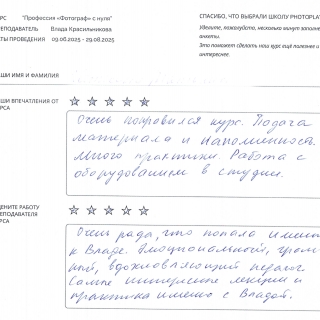 РС "Профессия «Фотограф» с нуля"
ПОДАВАТЕЛЬ Влада Красильникова
ТЫ ПРОВЕДЕНИЯ 09.06.2025 - 29.08.2025
СПАСИБО, ЧТО ВЫБРАЛИ ШКОЛУ PHOTOPLAY
Уделите, пожалуйста, несколько минут заполне
анкеты.
Это поможет сделать наш курс ещё полезнее и
интереснее.
ШИ ИМЯ И ФАМИЛИЯ
ШИ ВПЕЧАТЛЕНИЯ ОТ
РСА
Очень понравился курс. Подача
материала и наполненность.
Много практики. Работа с
оборудованием в студии.
ЕНИТЕ РАБОТУ
ЕПОДАВАТЕЛЯ
РСА
Очень рада, что попала именно
к Владе. Эмоциональный,
ный, вдохновляющий педагог.
Самые интересные лекции и
практика именно с Владой.